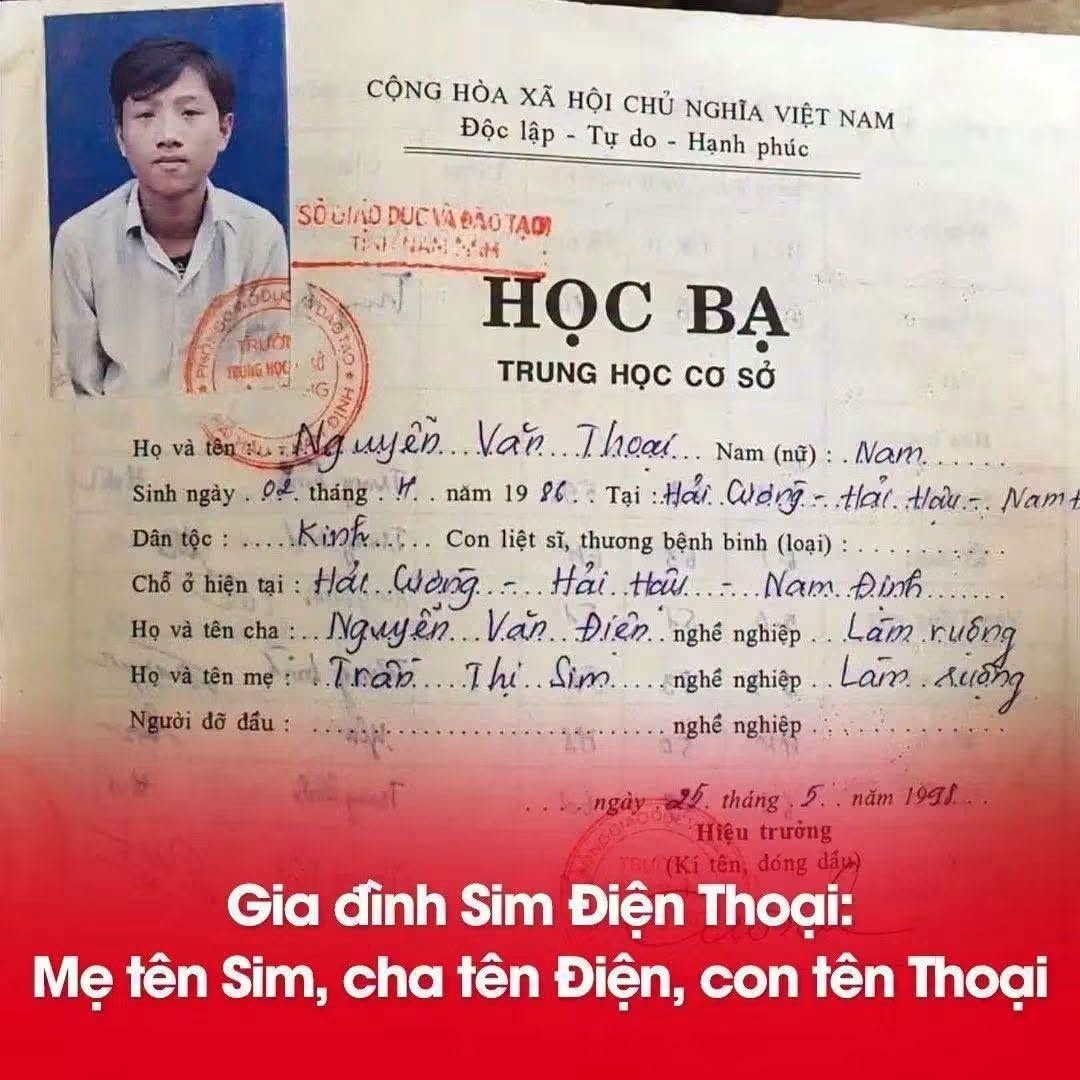 CỘNG HÒA XÃ HỘI CHỦ NGHĨA VIỆT NAM
Độc lập - Tự do - Hạnh phúc
SỞ GIÁO DỤC VÀ ĐÀO TẠO
TỈNH NAM
HỌC BẠ
TRUNG HỌC CƠ SỞ
TRƯỜNG
TRUNG HỌC
Họ và tên : Nguyễn Văn Thoại Nam (nữ) : Nam
Sinh ngày 02 tháng 4 năm 1986 Tại : Hải Cường - Hải Hậu - Nam
Dân tộc : Kinh Con liệt sĩ, thương bệnh binh (loại) :
Chỗ ở hiện tại : Hải Cường - Hải Hậu - Nam Định
Họ và tên cha : Nguyễn Văn Điện nghề nghiệp Làm ruộng
Họ và tên mẹ : Trần Thị Sim nghề nghiệp Làm ruộng
Người đỡ đầu : nghề nghiệp
ngày 25 tháng 5 năm 1998
Hiệu trưởng
(Kí tên, đóng dấu)
Gia đình Sim Điện Thoại:
Mẹ tên Sim, cha tên Điện, con tên Thoại